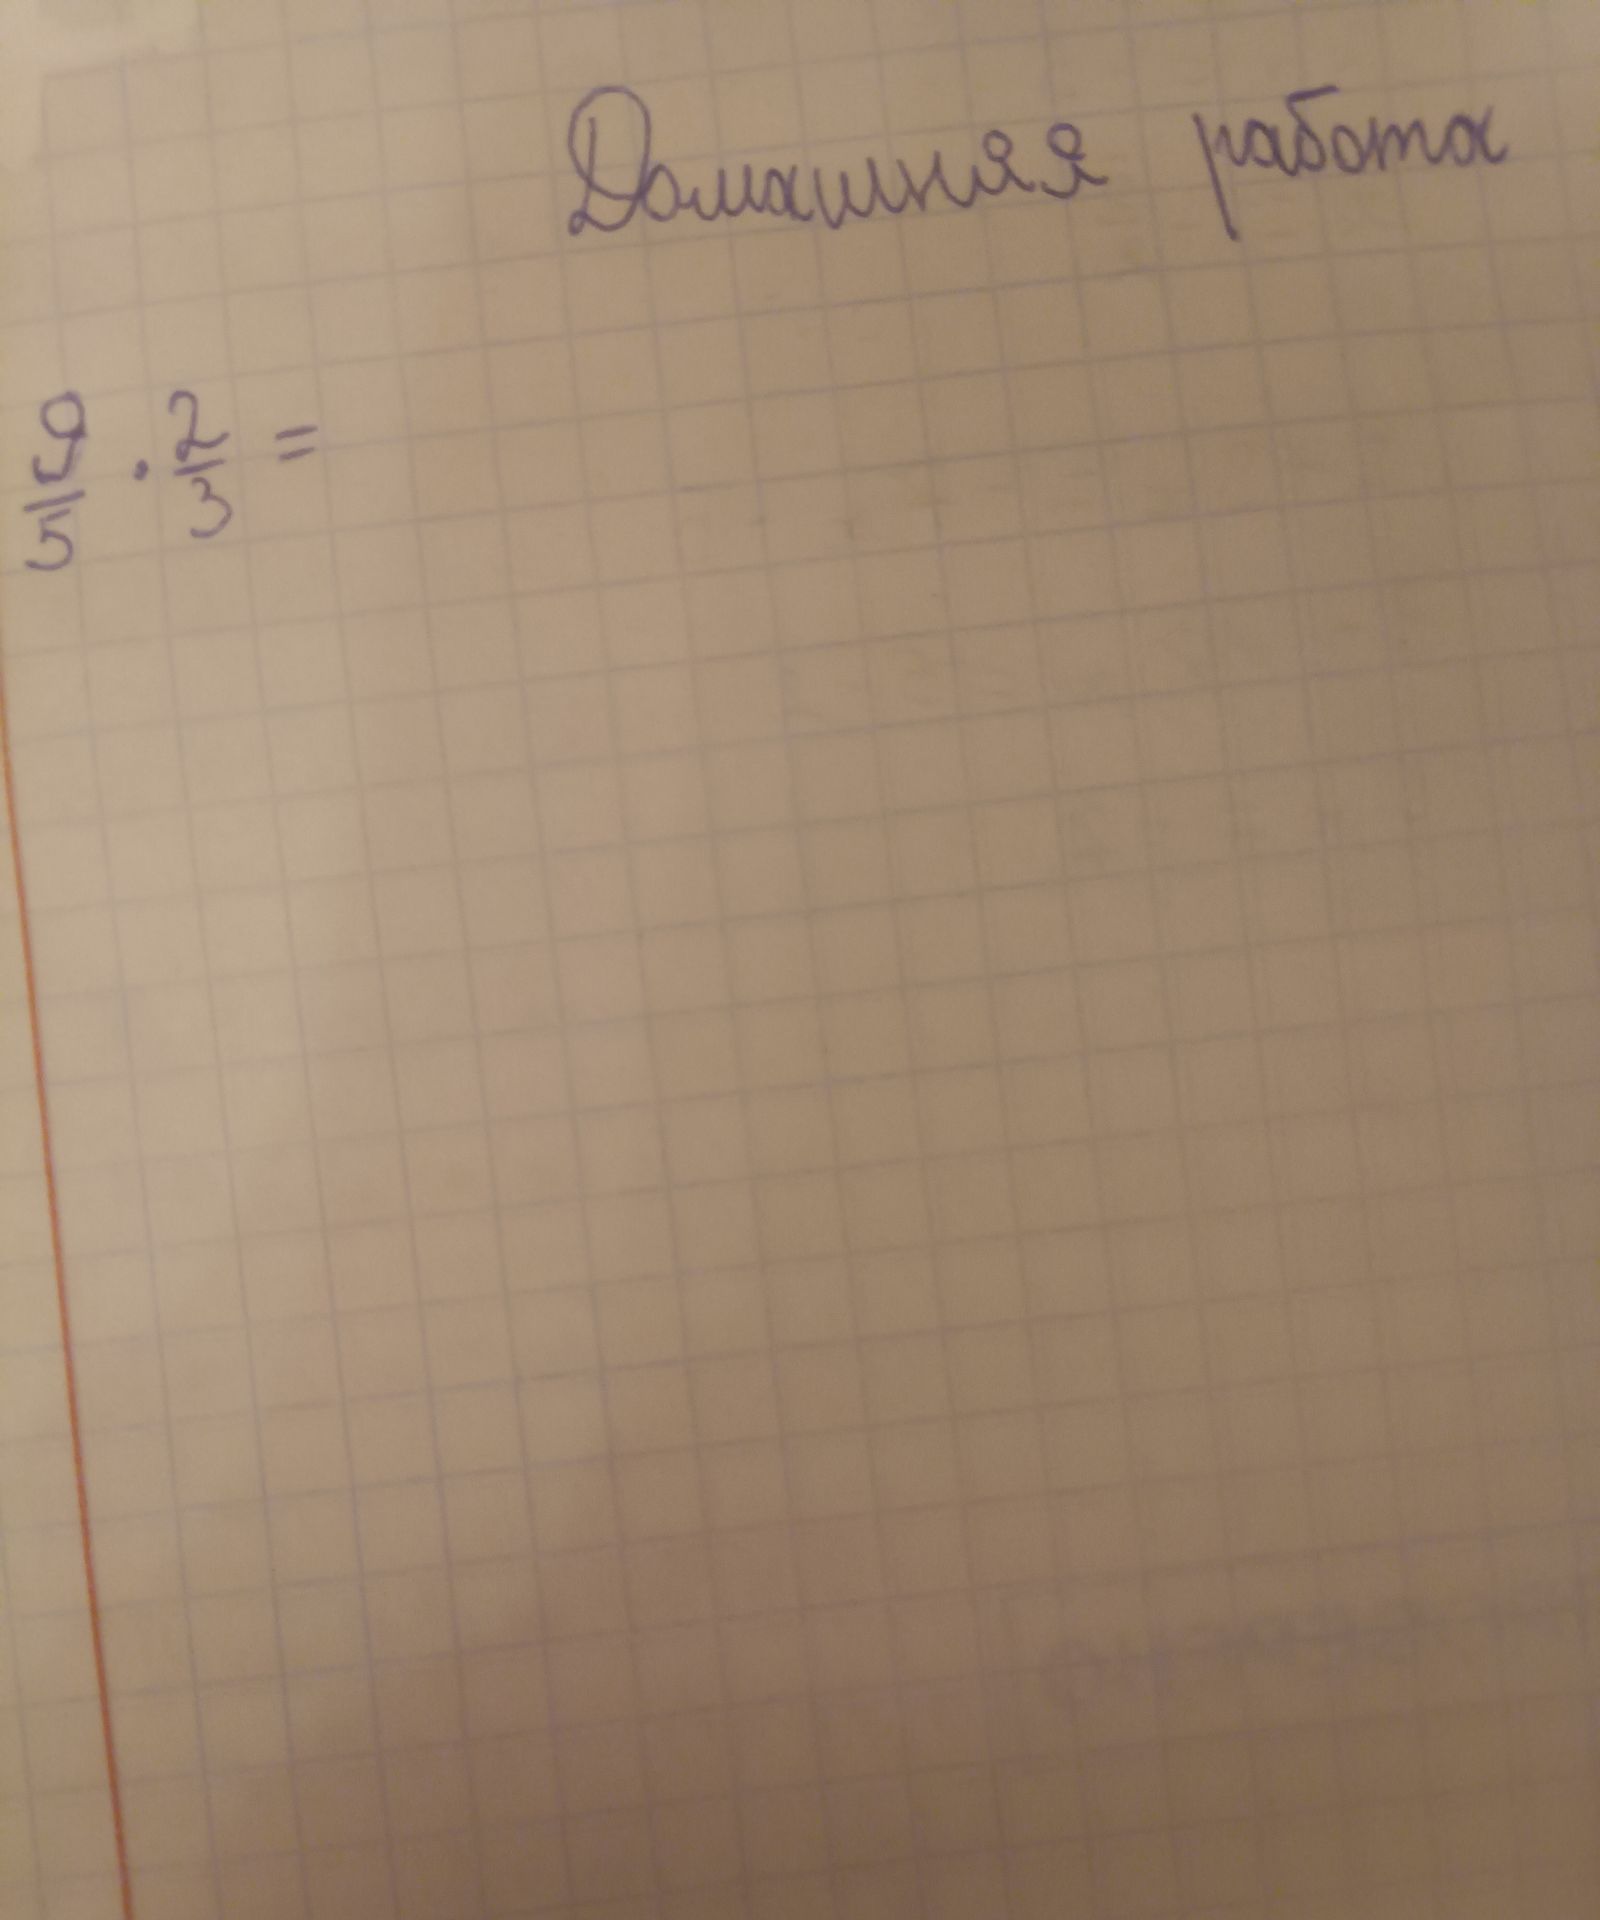 Домашняя работа
9/5 · 2/3 =